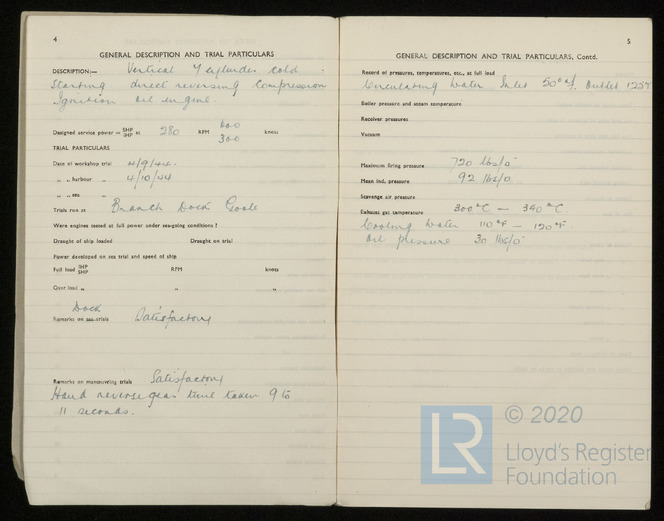 4
GENERAL DESCRIPTION AND TRIAL PARTICULARS
DESCRIPTION:— Vertical 7 cylinder cold
Starting direct reversing Compression
Ignition oil engine.
Designed service power = SHP IHP at 280 RPM 600 300 knots
TRIAL PARTICULARS
Date of workshop trial 4/9/44.
„ „ harbour „ 4/10/44
„ „ sea „
Trials run at Branch Dock Goole
Were engines tested at full power under sea-going conditions ?
Draught of ship loaded Draught on trial
Power developed on sea trial and speed of ship
Full load IHP SHP RPM knots
Over load „ „ „
Dock
Remarks on sea trials Satisfactory
Remarks on manœuvring trials Satisfactory
Hand reverse gear time taken 9 to
11 seconds.
5
GENERAL DESCRIPTION AND TRIAL PARTICULARS, Contd.
Record of pressures, temperatures, etc., at full load
Circulating Water Inlet 50°F. Outlet
Boiler pressure and steam temperature
Receiver pressures
Vacuum
Maximum firing pressure 720 lbs/□"
Mean ind. pressure 92 lbs/□
Scavenge air pressure
Exhaust gas temperature 300°C — 340°C
Cooling Water 110°F — 120°F
Oil pressure 30 lbs/□"
© 2020
LR
Lloyd's Register
Foundation